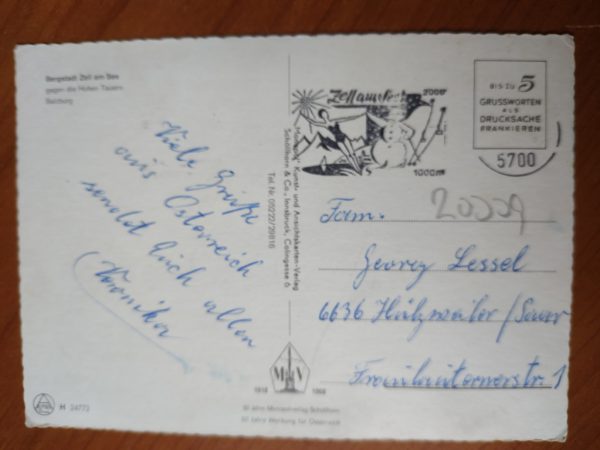 Bergstadt Zell am See
gegen die Hohen Tauern
Salzburg
Viele Grüße
aus Österreich
sendet Euch allen
Veronika
H 24773
"Monopol" Kunst- und Ansichtskarten-Verlag
Schöllhorn & Co., Innsbruck, Colingasse 6
Tel. Nr. 05222/29816
M V
1918 1968
50 Jahre Monopolverlag Schöllhorn
50 Jahre Werbung für Österreich
Zell am See
2000m
1000m
BIS ZU 5
GRUSSWORTEN
ALS
DRUCKSACHE
FRANKIEREN
5700
Fam.
Georg Lessel
6636 Hülzweiler/Saar
Fraulauternerstr. 1